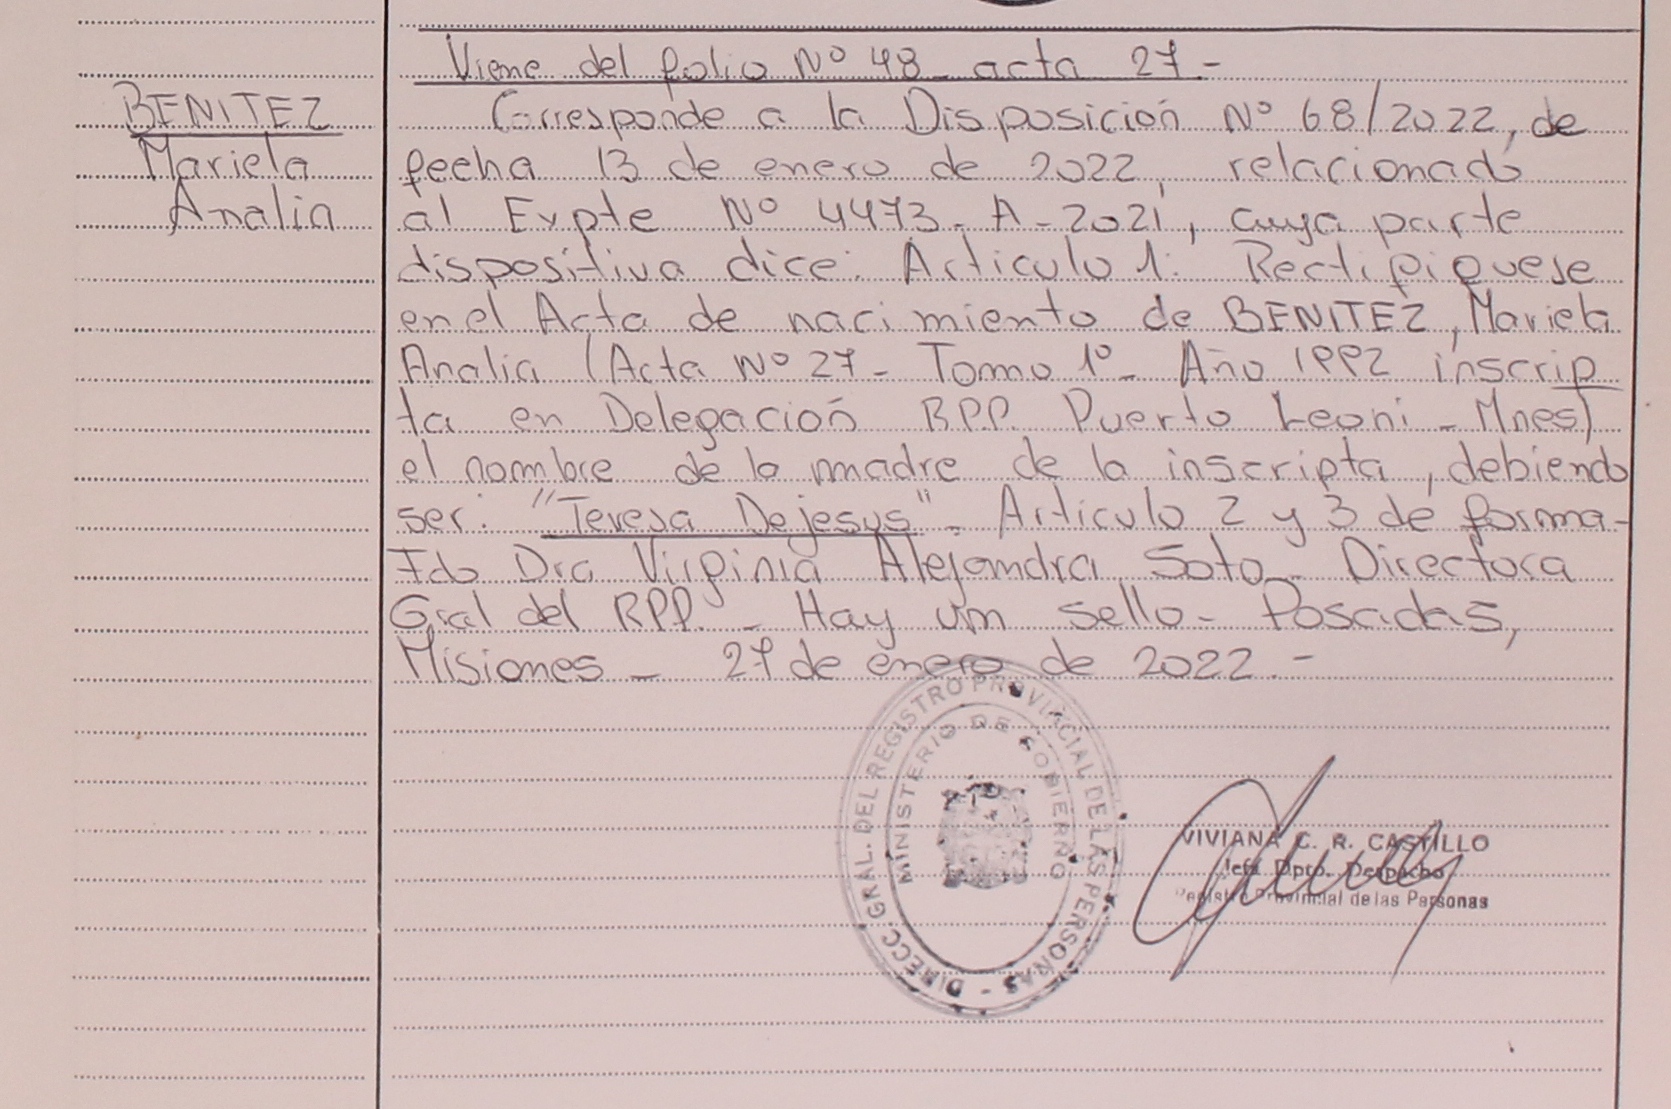 Viene del folio Nº 48 - acta 27 -
BENITEZ
Mariela
Analia
Corresponde a la Disposición Nº 68/2022, de
fecha 13 de enero de 2022, relacionado
al Expte Nº 4473 - A - 2021, cuya parte
dispositiva dice: Articulo 1: Rectifiquese
en el Acta de nacimiento de BENITEZ, Mariela
Analia (Acta Nº 27 - Tomo 1º - Año 1992 inscrip
ta en Delegación RPP. Puerto Leoni - Mnes)
el nombre de la madre de la inscripta, debiendo
ser: "Teresa Dejesus" - Articulo 2 y 3 de forma -
Fdo Dra Virginia Alejandra Soto - Directora
Gral del RPP. - Hay um sello - Posadas,
Misiones - 27 de enero de 2022 -
DIRECC. GRAL. DEL REGISTRO PROVINCIAL DE LAS PERSONAS -
MINISTERIO DE GOBIERNO
VIVIANA C. R. CASTILLO
Jefa Dpto. Despacho
Registro Provincial de las Personas